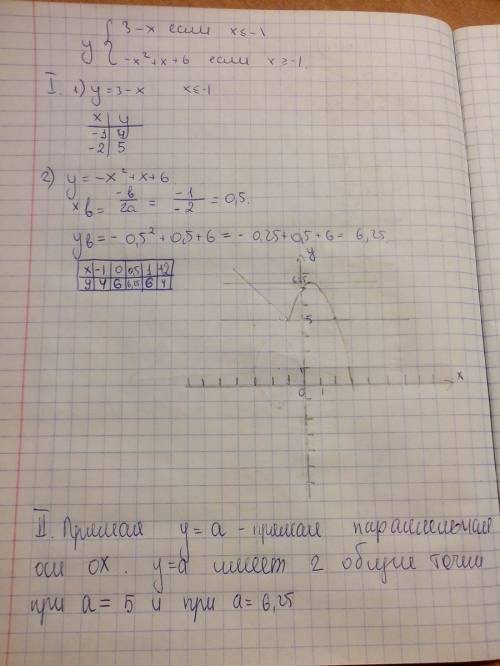 y { 3-x если x≤-1
-x²+x+6 если x≥-1
I. 1) y=3-x x≤-1
x | y
-1 | 4
-2 | 5
2) y=-x²+x+6
xв = -в/2a = -1/-2 = 0,5.
yв = -0,5²+0,5+6 = -0,25+0,5+6 = 6,25
x | -1 | 0 | 0,5 | 1 | +2
y | 4 | 6 | 6,25 | 6 | 4
y
6,25
5
x
0 1
II. Прямая y=a - прямая параллельная
оси OX. y=a имеет 2 общие точки
при a=5 и при a=6,25